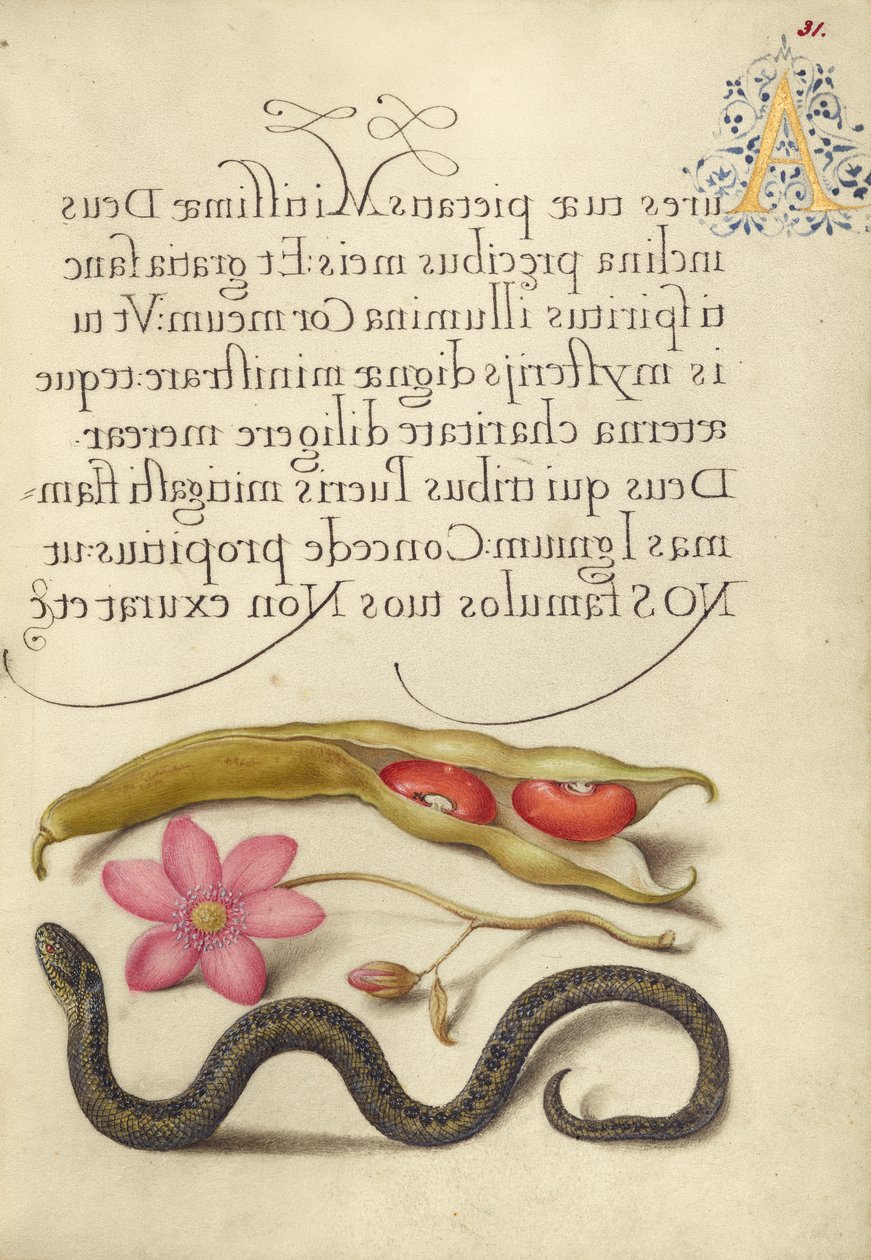 31.
Aures tuæ pietatis Mitissimæ Deus
inclina precibus meis: Et gratia sanc
ti spiritus illumina Cor meum: Vt tu
is mysterijs dignæ ministrare: teque
æterna charitate diligere merear.
Deus qui tribus Pueris mitigasti flam=
mas Ignium: Concede propitius: ut
NOS famulos tuos Non exurat etc